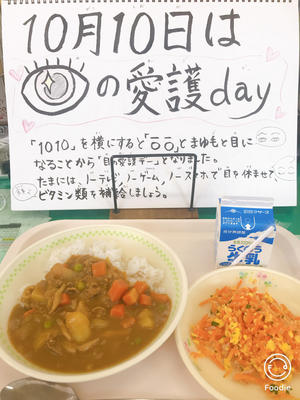 10月10日は
の愛護day
「1010」を横にすると「 」とまゆもと目に
なることから「目の愛護デー」となりました。
たまには、ノーテレビ、ノーゲーム、ノースマホで目を休ませて、
ビタミン類を補給しましょう。
らくのう
牛乳
Foodie